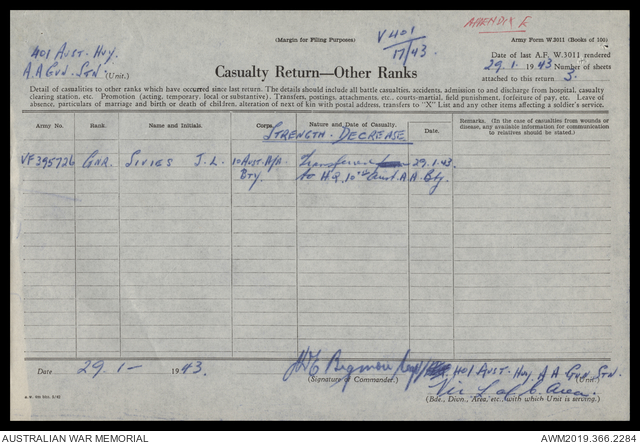 APPENDIX E
(Margin for Filing Purposes)
Army Form W.3011 (Books of 100)
V401
17/43
401 Aust. Hvy.
A.A Gun. Stn. (Unit.)
Date of last A.F. W.3011 rendered
29.1. 1943 Number of sheets
attached to this return. 3.
Casualty Return—Other Ranks
Detail of casualties to other ranks which have occurred since last return. The details should include all battle casualties, accidents, admission to and discharge from hospital, casualty
clearing station, etc. Promotion (acting, temporary, local or substantive). Transfers, postings, attachments, etc., courts-martial, field punishment, forfeiture of pay, etc. Leave of
absence, particulars of marriage and birth or death of children, alteration of next of kin with postal address, transfers to "X" List and any other items affecting a soldier's service.
Army No.
Rank.
Name and Initials.
Corps.
Nature and Date of Casualty.
Date.
Remarks. (In the case of casualties from wounds or
disease, any available information for communication
to relatives should be stated.)
STRENGTH - DECREASE
VF395726 GNR. J.L. 10 Aust. A/A Transferred 29.1.43.
Bty. to H.Q. 10th Aust. A.A. Bty.
Date 29.1- 1943.
(Signature of Commander.)
401 Aust. Hvy A A Gun Stn.
(Unit.)
Vic L of C. Area.
(Bde., Divn., Area, etc., with which Unit is serving.)
AUSTRALIAN WAR MEMORIAL
AWM2019.366.2284